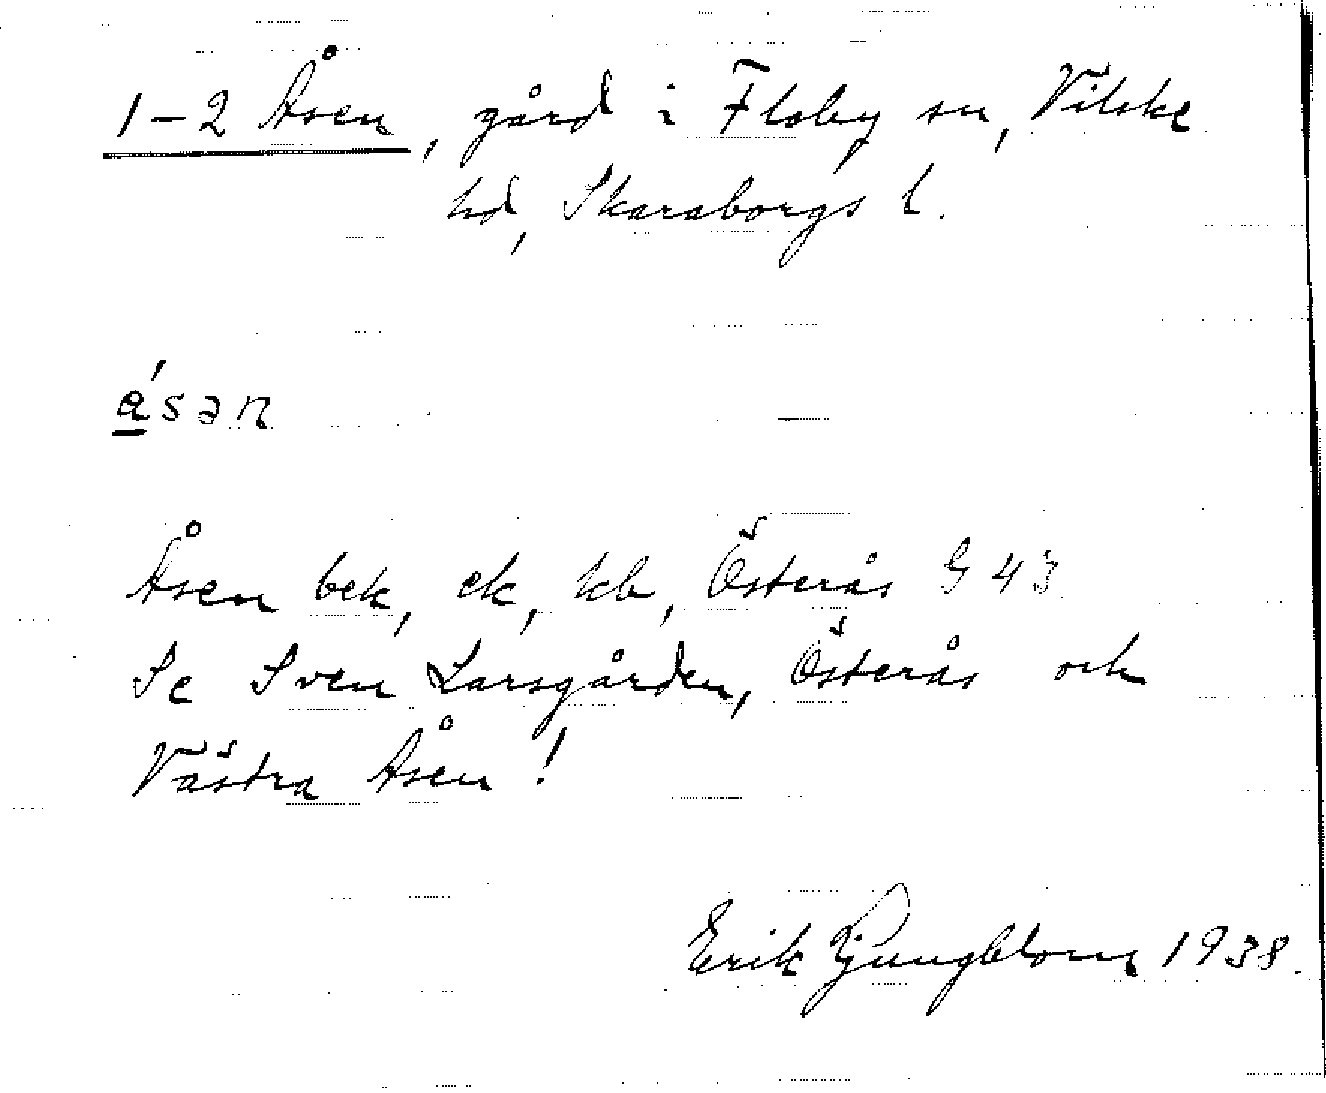 1–2 Åsen, gård i Floby sn, Vilske
hd, Skaraborgs l.
á̲san
Åsen bek, ek, kb, Österås G 43
Se Sven Larsgården, Österås och
Västra Åsen!
Erik Ljungblom 1938.